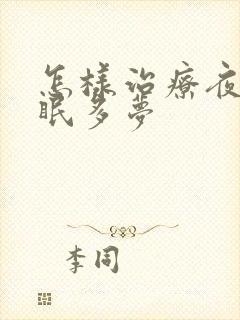 怎樣治療夜
眠多夢
李同